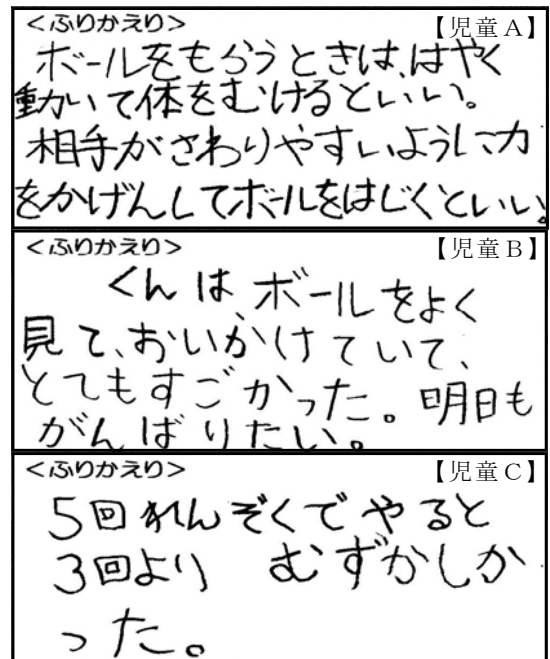 <ふりかえり>【児童A】
ボールをもらうときは、はやく
動いて体をむけるといい。
相手がさわりやすいように力
をかげんしてボールをはじくといい。
<ふりかえり>【児童B】
くんは、ボールをよく
見て、おいかけていて、
とてもすごかった。明日も
がんばりたい。
<ふりかえり>【児童C】
5回れんぞくでやると
3回より むずかしか
った。